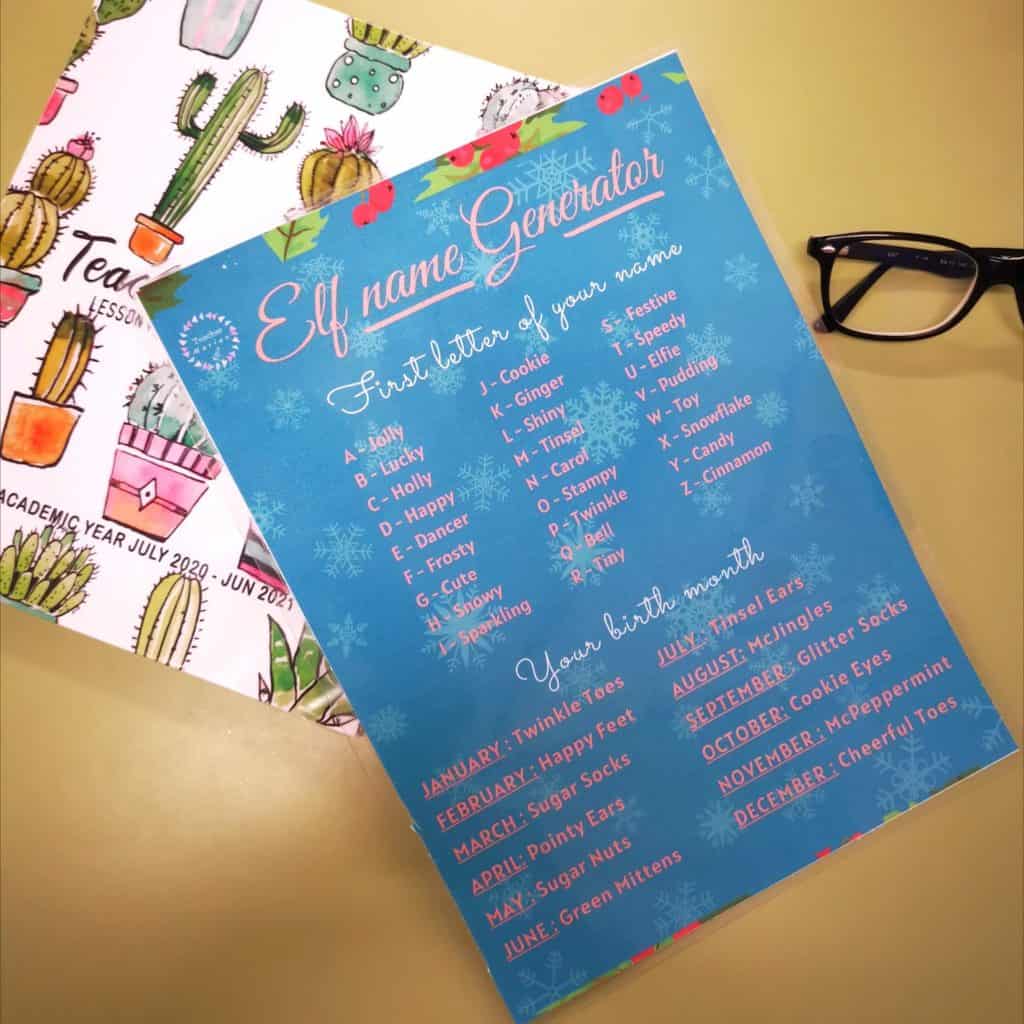 Elf name Generator
First letter of your name
A - Jolly
B - Lucky
C - Holly
D - Happy
E - Dancer
F - Frosty
G - Cute
H - Snowy
I - Sparkling
J - Cookie
K - Ginger
L - Shiny
M - Tinsel
N - Carol
O - Stampy
P - Twinkle
Q - Bell
R - Tiny
S - Festive
T - Speedy
U - Elfie
V - Pudding
W - Toy
X - Snowflake
Y - Candy
Z - Cinnamon
Your birth month
JANUARY : Twinkle Toes
FEBRUARY : Happy Feet
MARCH : Sugar Socks
APRIL: Pointy Ears
MAY : Sugar Nuts
JUNE : Green Mittens
JULY : Tinsel Ears
AUGUST: McJingles
SEPTEMBER : Glitter Socks
OCTOBER: Cookie Eyes
NOVEMBER : McPeppermint
DECEMBER : Cheerful Toes
Teac
LESSON
ACADEMIC YEAR JULY 2020 - JUN 2021